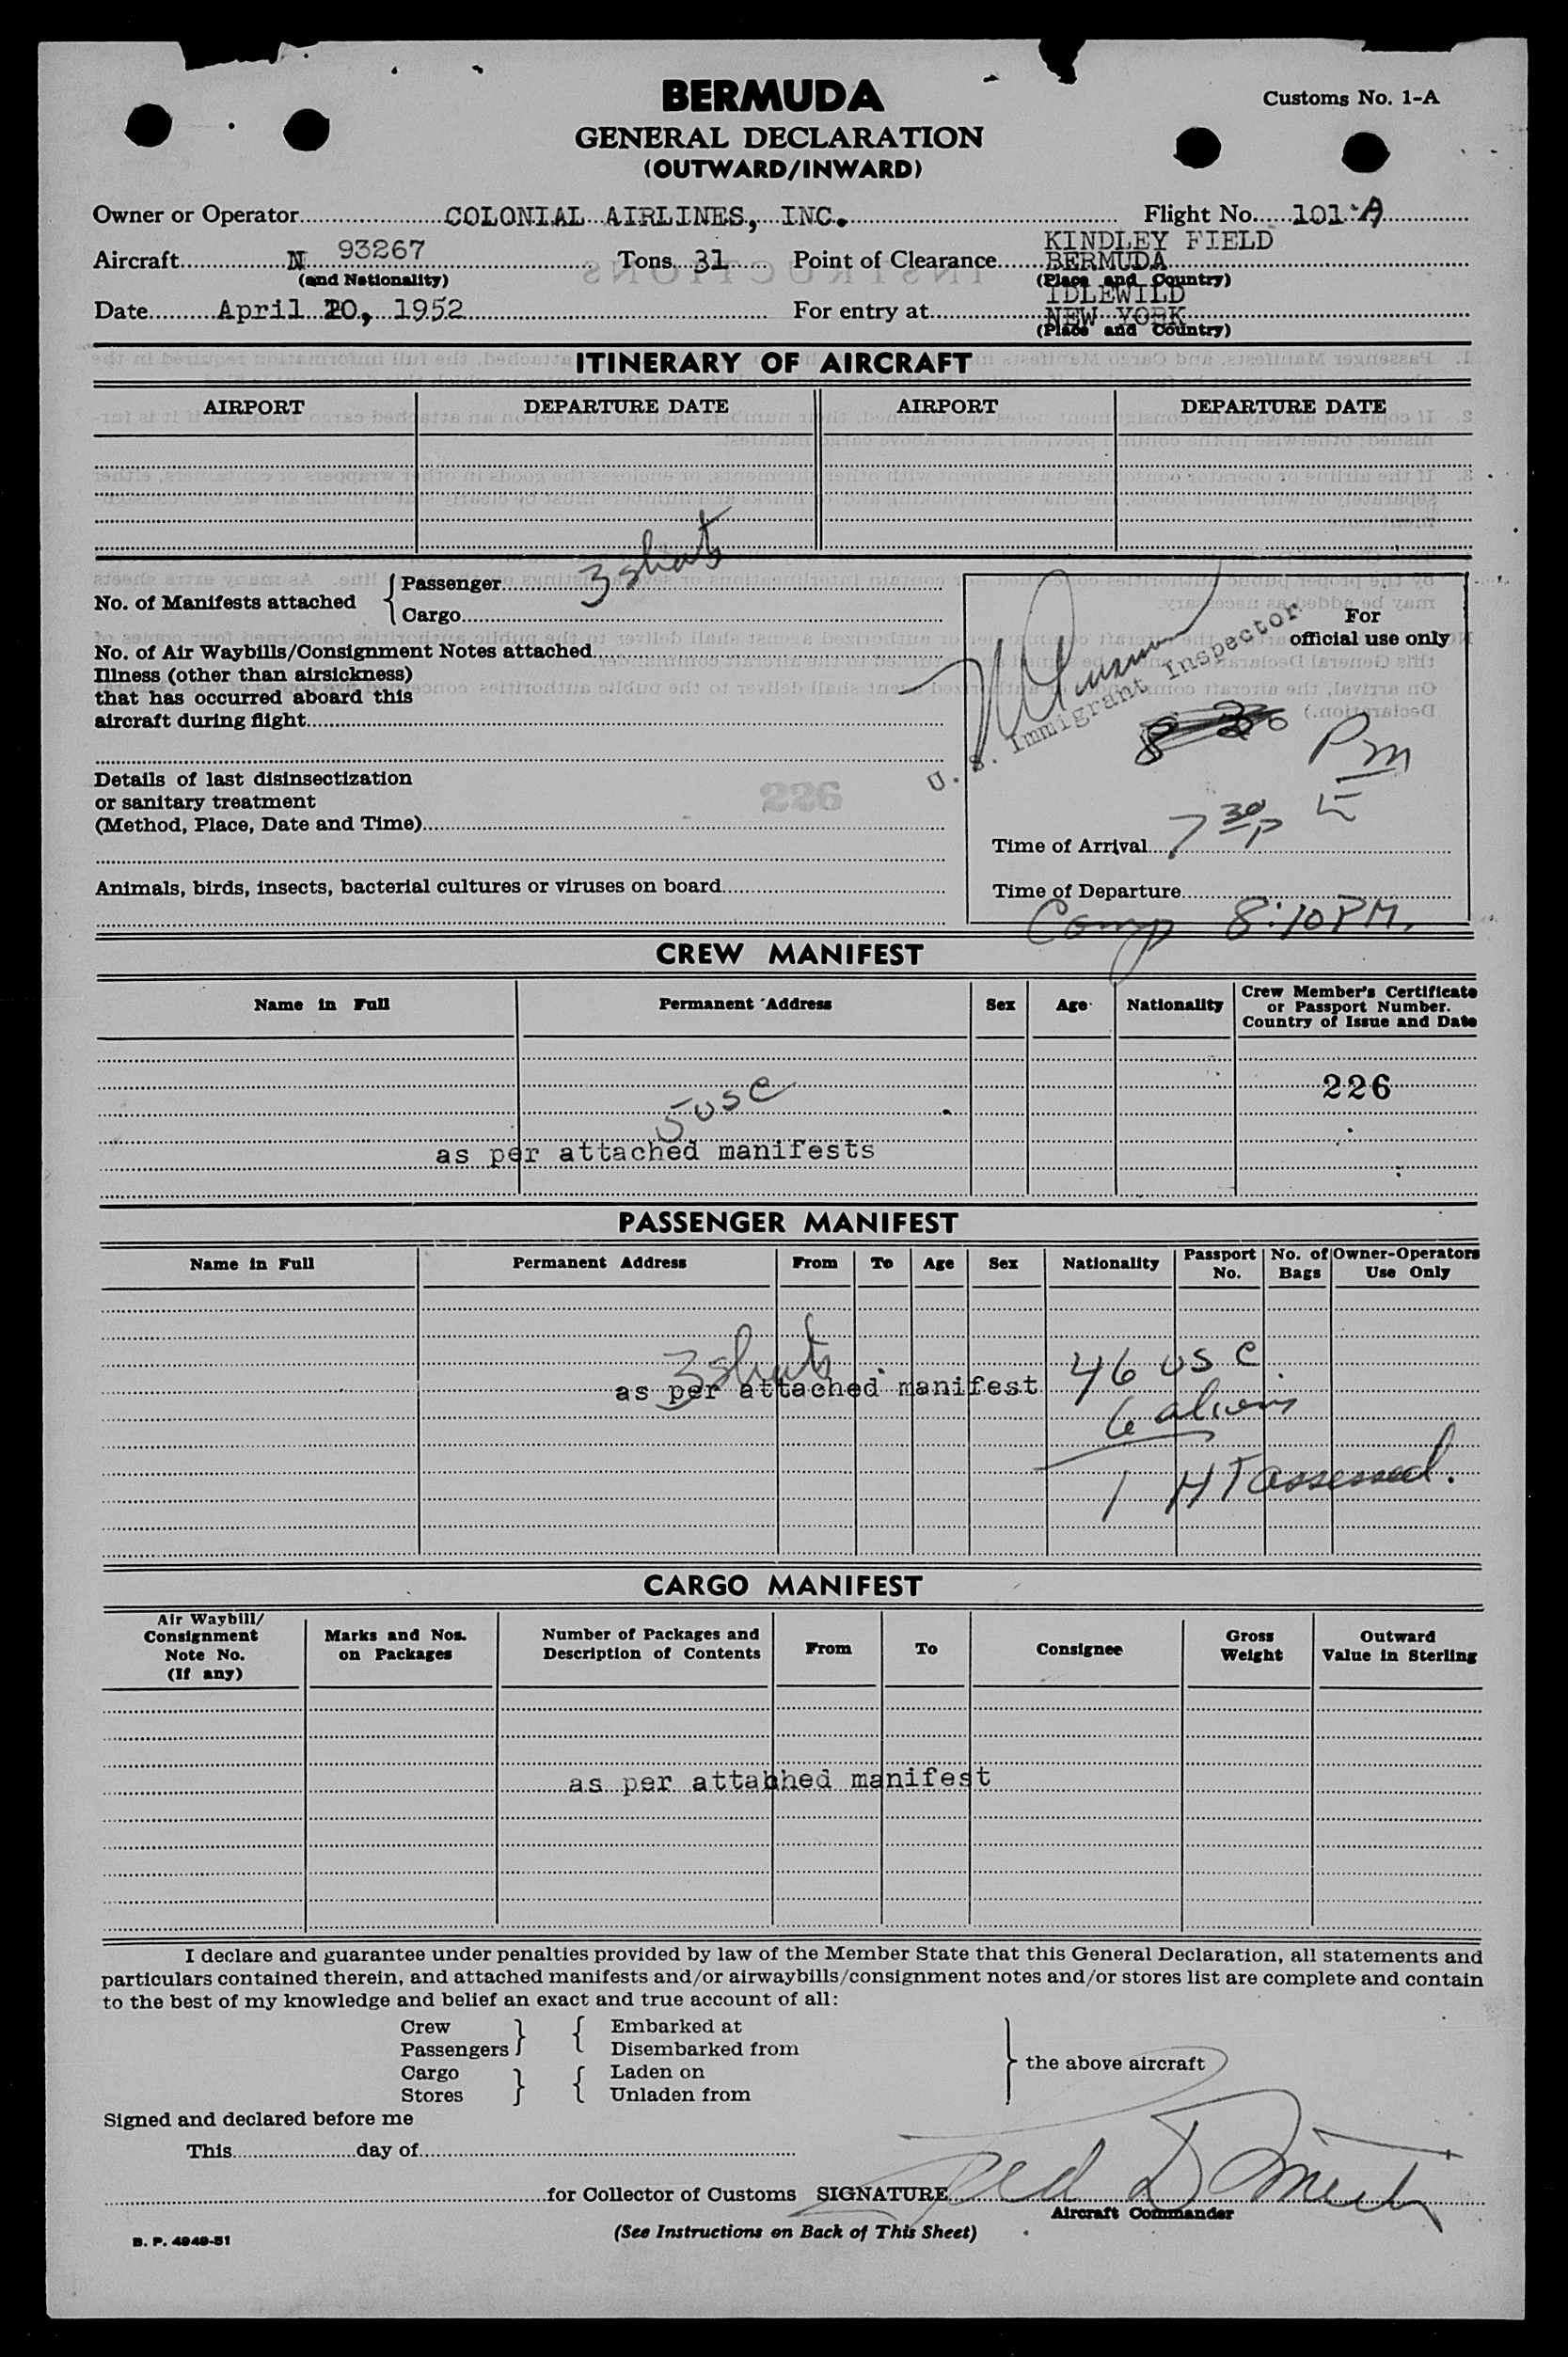 BERMUDA
Customs No. 1-A
GENERAL DECLARATION
(OUTWARD/INWARD)
Owner or Operator COLONIAL AIRLINES, INC. Flight No. 101-A
Aircraft N 93267 Tons 31 Point of Clearance KINDLEY FIELD BERMUDA
(and Nationality) (Place and Country)
Date April 20, 1952 For entry at IDLEWILD NEW YORK
(Place and Country)
ITINERARY OF AIRCRAFT
AIRPORT DEPARTURE DATE AIRPORT DEPARTURE DATE
No. of Manifests attached { Passenger 3 shats
Cargo
No. of Air Waybills/Consignment Notes attached
Illness (other than airsickness)
that has occurred aboard this
aircraft during flight
Details of last disinsectization
or sanitary treatment
(Method, Place, Date and Time)
Animals, birds, insects, bacterial cultures or viruses on board
For
official use only
U. S. Immigrant Inspector
Pm
Time of Arrival 7 30 P
Time of Departure
Comp 8:10 PM.
CREW MANIFEST
Name in Full Permanent Address Sex Age Nationality Crew Member's Certificate or Passport Number. Country of Issue and Date
226
5 USC
as per attached manifests
PASSENGER MANIFEST
Name in Full Permanent Address From To Age Sex Nationality Passport No. No. of Bags Owner-Operators Use Only
3 shats
as per attached manifest
46 USC
6 aliens
1 HT assessed.
CARGO MANIFEST
Air Waybill/ Consignment Note No. (If any) Marks and Nos. on Packages Number of Packages and Description of Contents From To Consignee Gross Weight Outward Value in Sterling
as per attabhed manifest
I declare and guarantee under penalties provided by law of the Member State that this General Declaration, all statements and
particulars contained therein, and attached manifests and/or airwaybills/consignment notes and/or stores list are complete and contain
to the best of my knowledge and belief an exact and true account of all:
Crew } { Embarked at
Passengers } { Disembarked from
} the above aircraft
Cargo } { Laden on
Stores } { Unladen from
Signed and declared before me
This day of
for Collector of Customs SIGNATURE
Aircraft Commander
(See Instructions on Back of This Sheet)
B. P. 4949-51